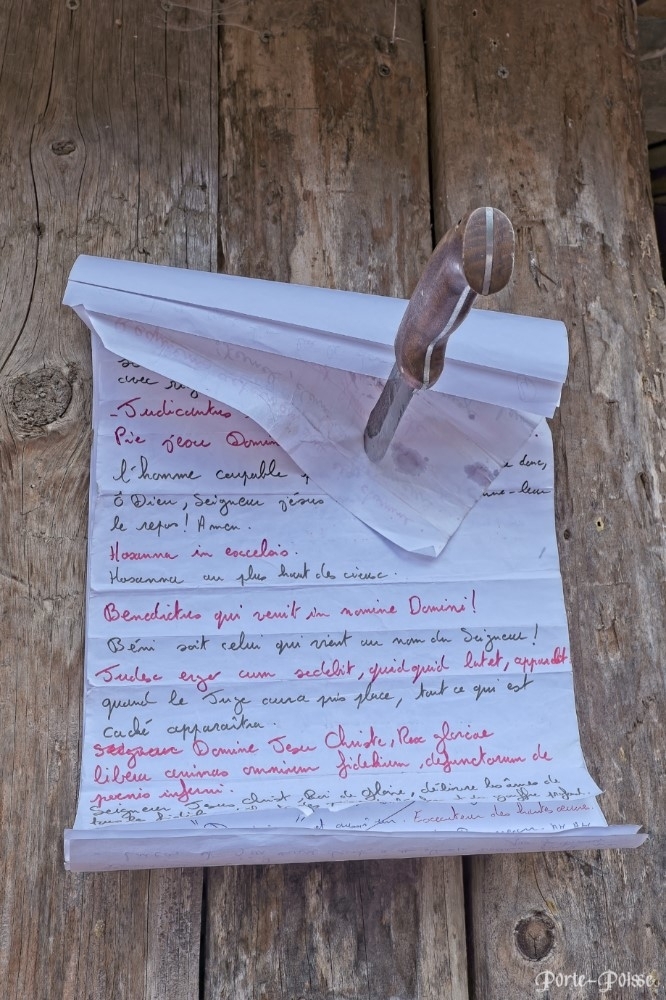 avec
-Judicantes
Pie jesu Domin
l'homme coupable donc,
Ô Dieu, Seigneur jésus -leur
le repos! Amen.
Hosanna in excelsis.
Hosanna au plus haut des cieux.
Benedictus qui venit in nomine Domini!
Béni soit celui qui vient au nom du Seigneur!
Judex ergo cum sedebit, quidquid latet, apparebit
quand le Juge aura pris place, tout ce qui est
caché apparaîtra.
Domine Jesu Christe, Rex gloriae
libera animas omnium fidelium, defunctorum de
poenis inferni.
Seigneur Jesus Christ Roi de Gloire, délivre les âmes de
Executeur des hautes œuvres.
Porte-Poisse